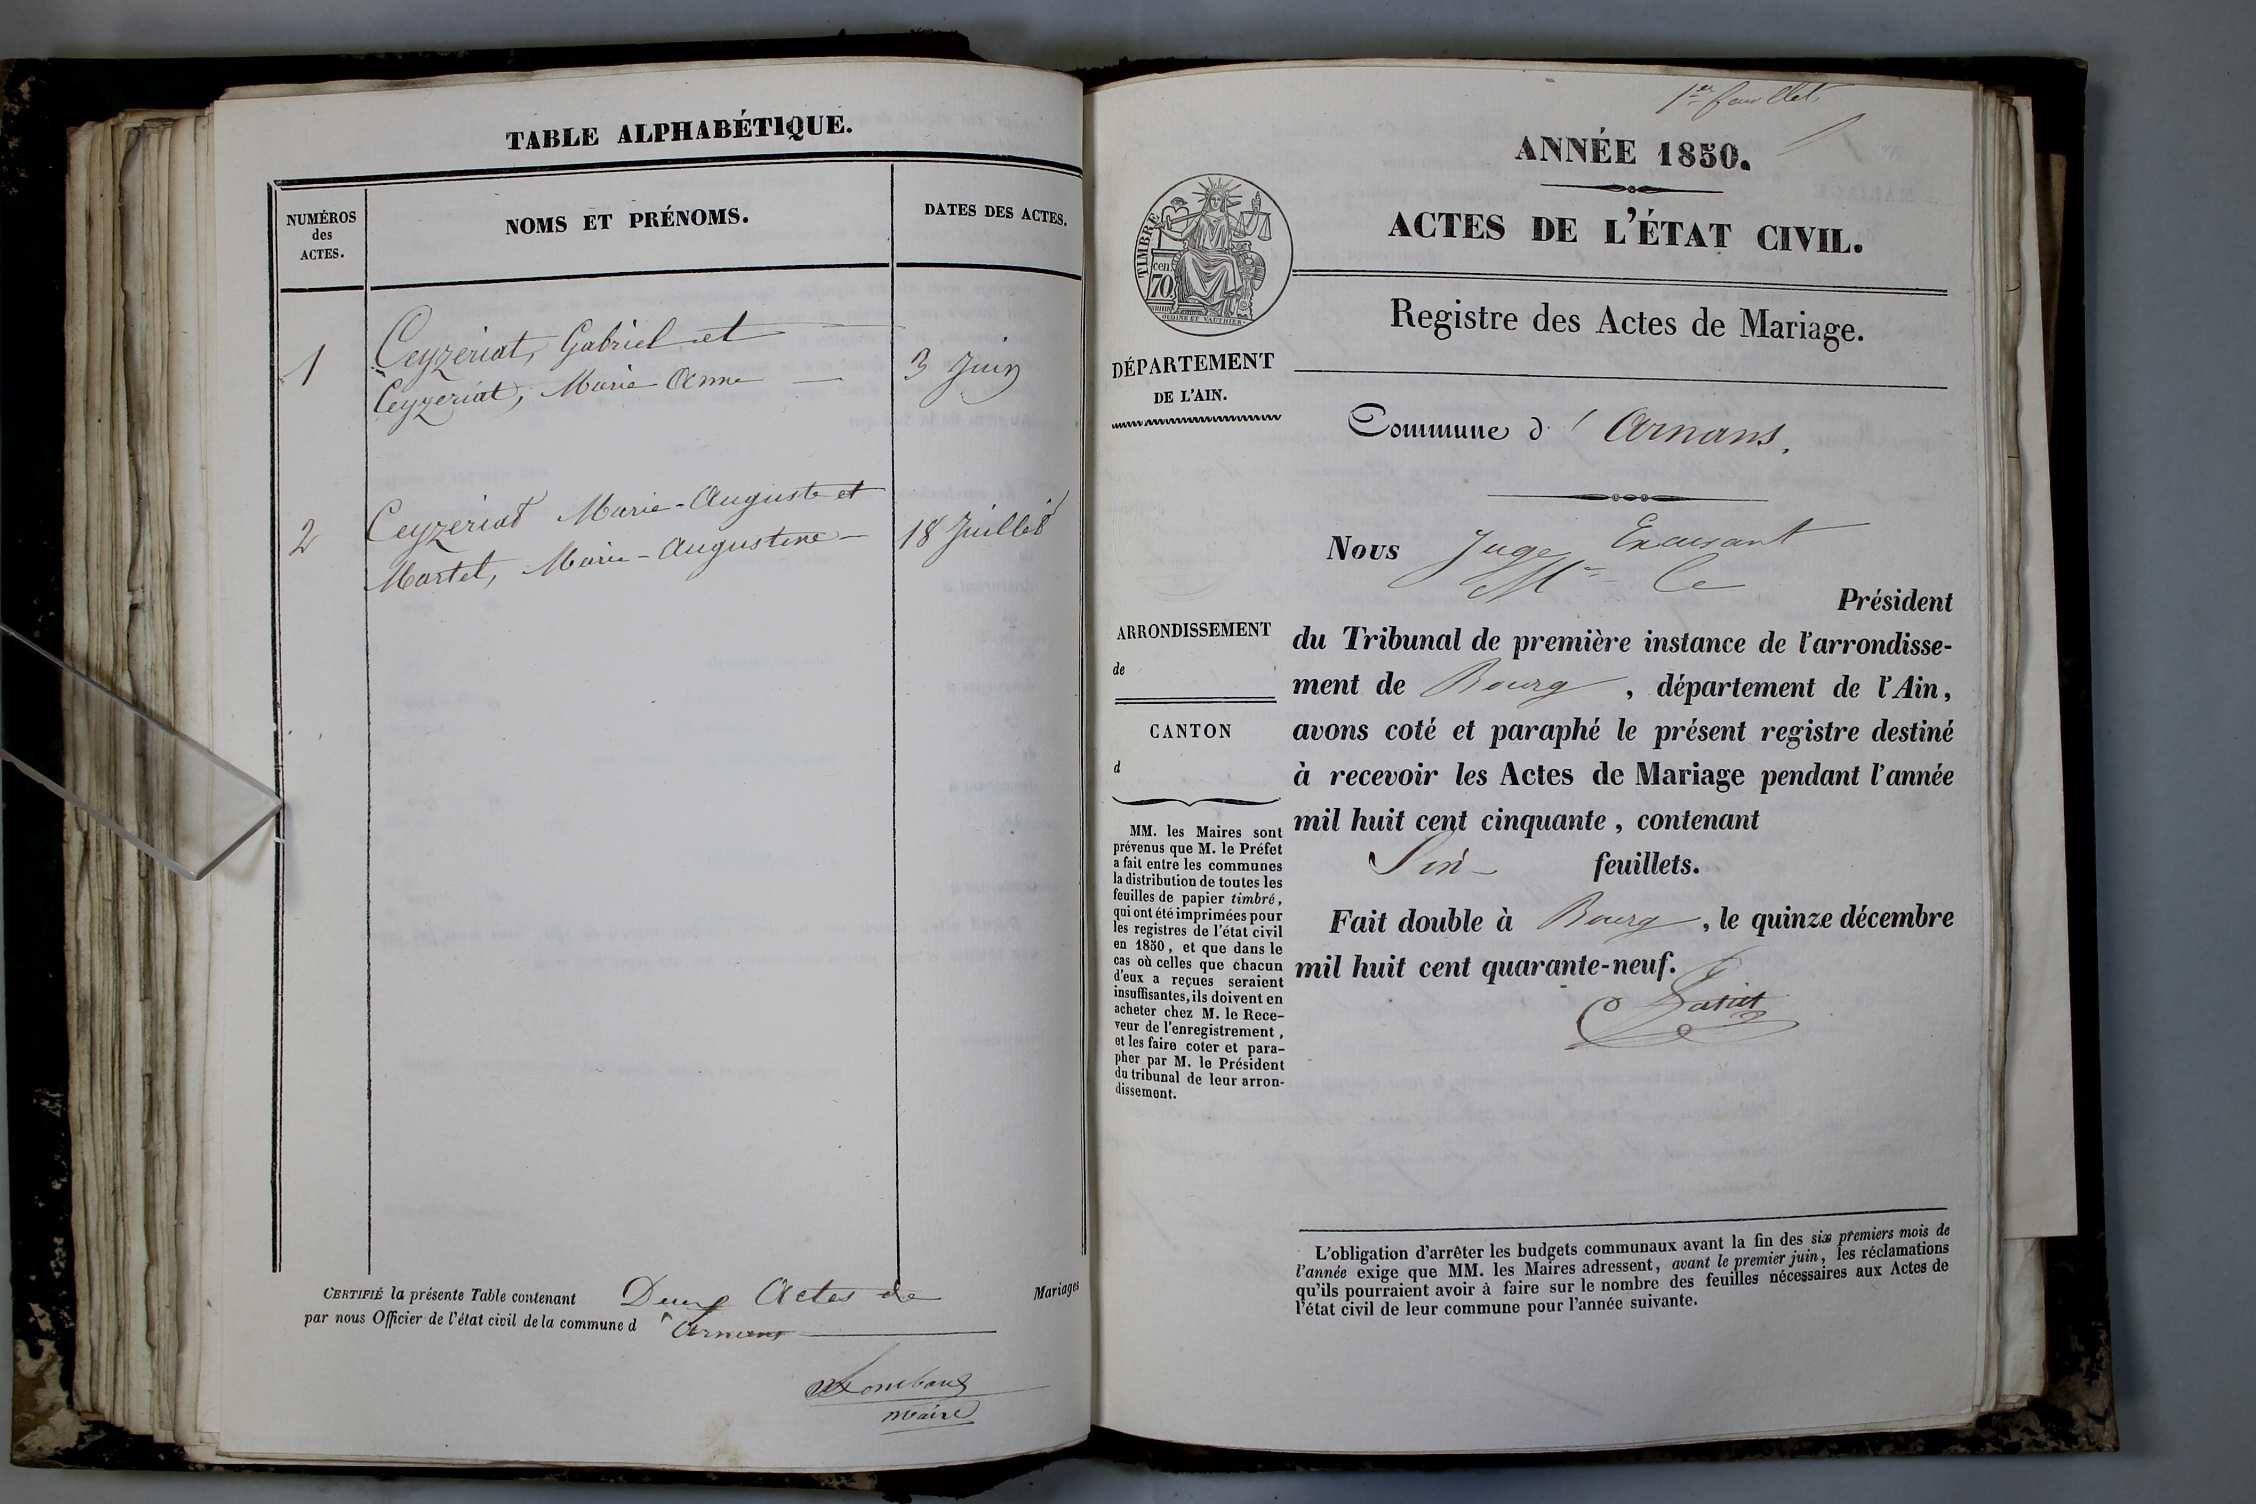 TABLE ALPHABÉTIQUE.
NUMÉROS
des
ACTES.
NOMS ET PRÉNOMS.
DATES DES ACTES.
1
Ceyzériat, Gabriel et
Ceyzériat, Marie Anne
3 Juin
2
Ceyzériat Marie-Auguste et
Martel, Marie-Augustine
18 Juillet
CERTIFIÉ la présente Table contenant Deux Actes de Mariages
par nous Officier de l'état civil de la commune d'Arnans
maire
1er feuillet
ANNÉE 1850.
ACTES DE L'ÉTAT CIVIL.
TIMBRE
cen.
70.
OUDINÉ ET VAUTHIER
Registre des Actes de Mariage.
DÉPARTEMENT
DE L'AIN.
Commune d'Arnans.
ARRONDISSEMENT
de
CANTON
d
MM. les Maires sont
prévenus que M. le Préfet
a fait entre les communes
la distribution de toutes les
feuilles de papier timbré,
qui ont été imprimées pour
les registres de l'état civil
en 1850, et que dans le
cas où celles que chacun
d'eux a reçues seraient
insuffisantes, ils doivent en
acheter chez M. le Rece-
veur de l'enregistrement,
et les faire coter et para-
pher par M. le Président
du tribunal de leur arron-
dissement.
Nous Juge
Mr le
Président
du Tribunal de première instance de l'arrondisse-
ment de Bourg, département de l'Ain,
avons coté et paraphé le présent registre destiné
à recevoir les Actes de Mariage pendant l'année
mil huit cent cinquante, contenant
Six feuillets.
Fait double à Bourg, le quinze décembre
mil huit cent quarante-neuf.
L'obligation d'arrêter les budgets communaux avant la fin des six premiers mois de
l'année exige que MM. les Maires adressent, avant le premier juin, les réclamations
qu'ils pourraient avoir à faire sur le nombre des feuilles nécessaires aux Actes de
l'état civil de leur commune pour l'année suivante.